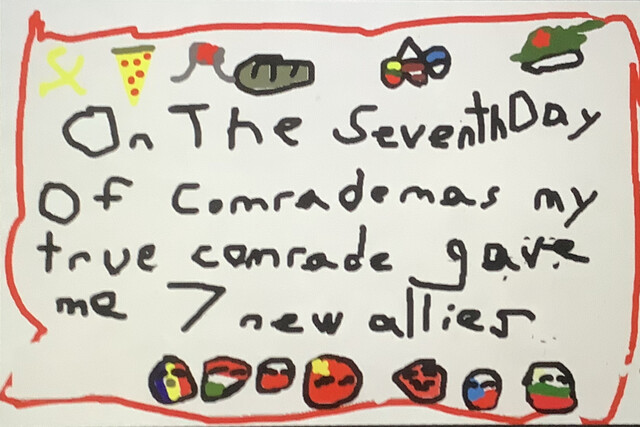 On The SeventhDay
Of Comrademas my
true comrade gave
me 7 new allies